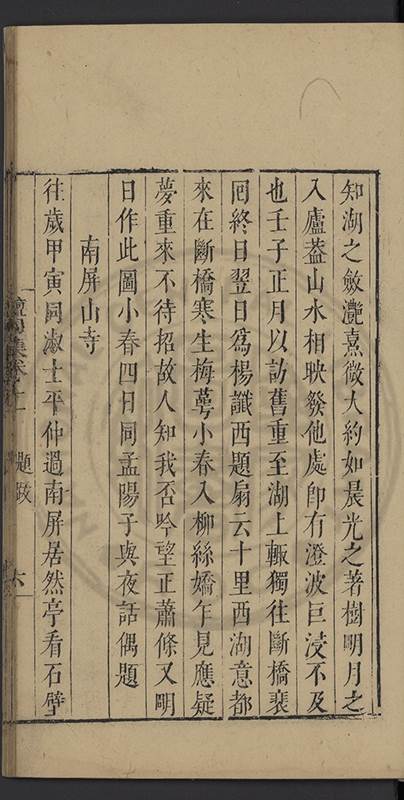 知湖之斂灩熹微大約如晨光之著樹明月之
入廬葢山水相映發他處卽有澄波巨浸不及
也壬子正月以訪舊重至湖上輒獨往斷橋裵
囘終日翌日爲楊讖西題扇云十里西湖意都
來在斷橋寒生梅蕚小春入柳絲嬌乍見應疑
夢重來不待招故人知我否吟望正蕭條又明
日作此圖小春四日同孟陽子與夜話偶題
南屏山寺
往歲甲寅同淑士平仲過南屏居然亭看石壁
檀園集卷十一 題跋 六